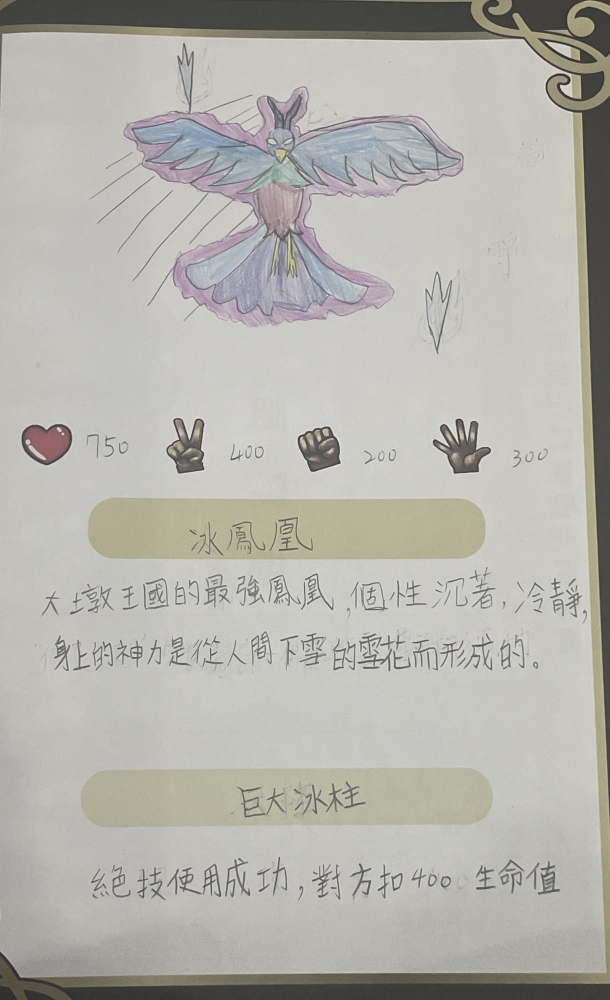 750 400 200 300
冰鳳凰
大墩王國的最強鳳凰,個性沉著,冷靜,
身上的神力是從人間下雪的雪花而形成的。
巨大冰柱
絕技使用成功,對方扣400生命值